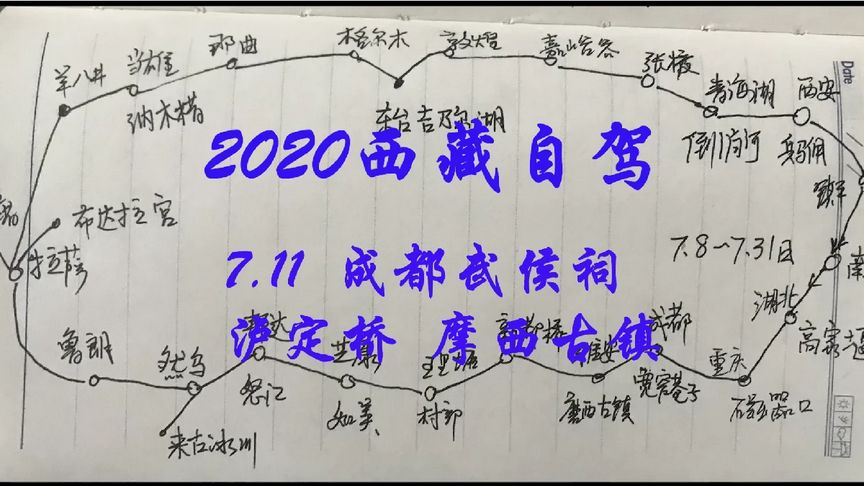 那曲 格尔木 敦煌 嘉峪关 张掖
羊八井 当雄 青海湖 西安
纳木措 东台吉乃尔湖 倒淌河 兵马俑
2020西藏自驾
布达拉宫
拉萨
7.8-7.31日
7.11 成都武侯祠
泸定桥 摩西古镇
湖北
鲁朗 然乌 芒康 理塘 雅安 成都 重庆
怒江 如美 磨西古镇 宽窄巷子 磁器口
来古冰川
Date